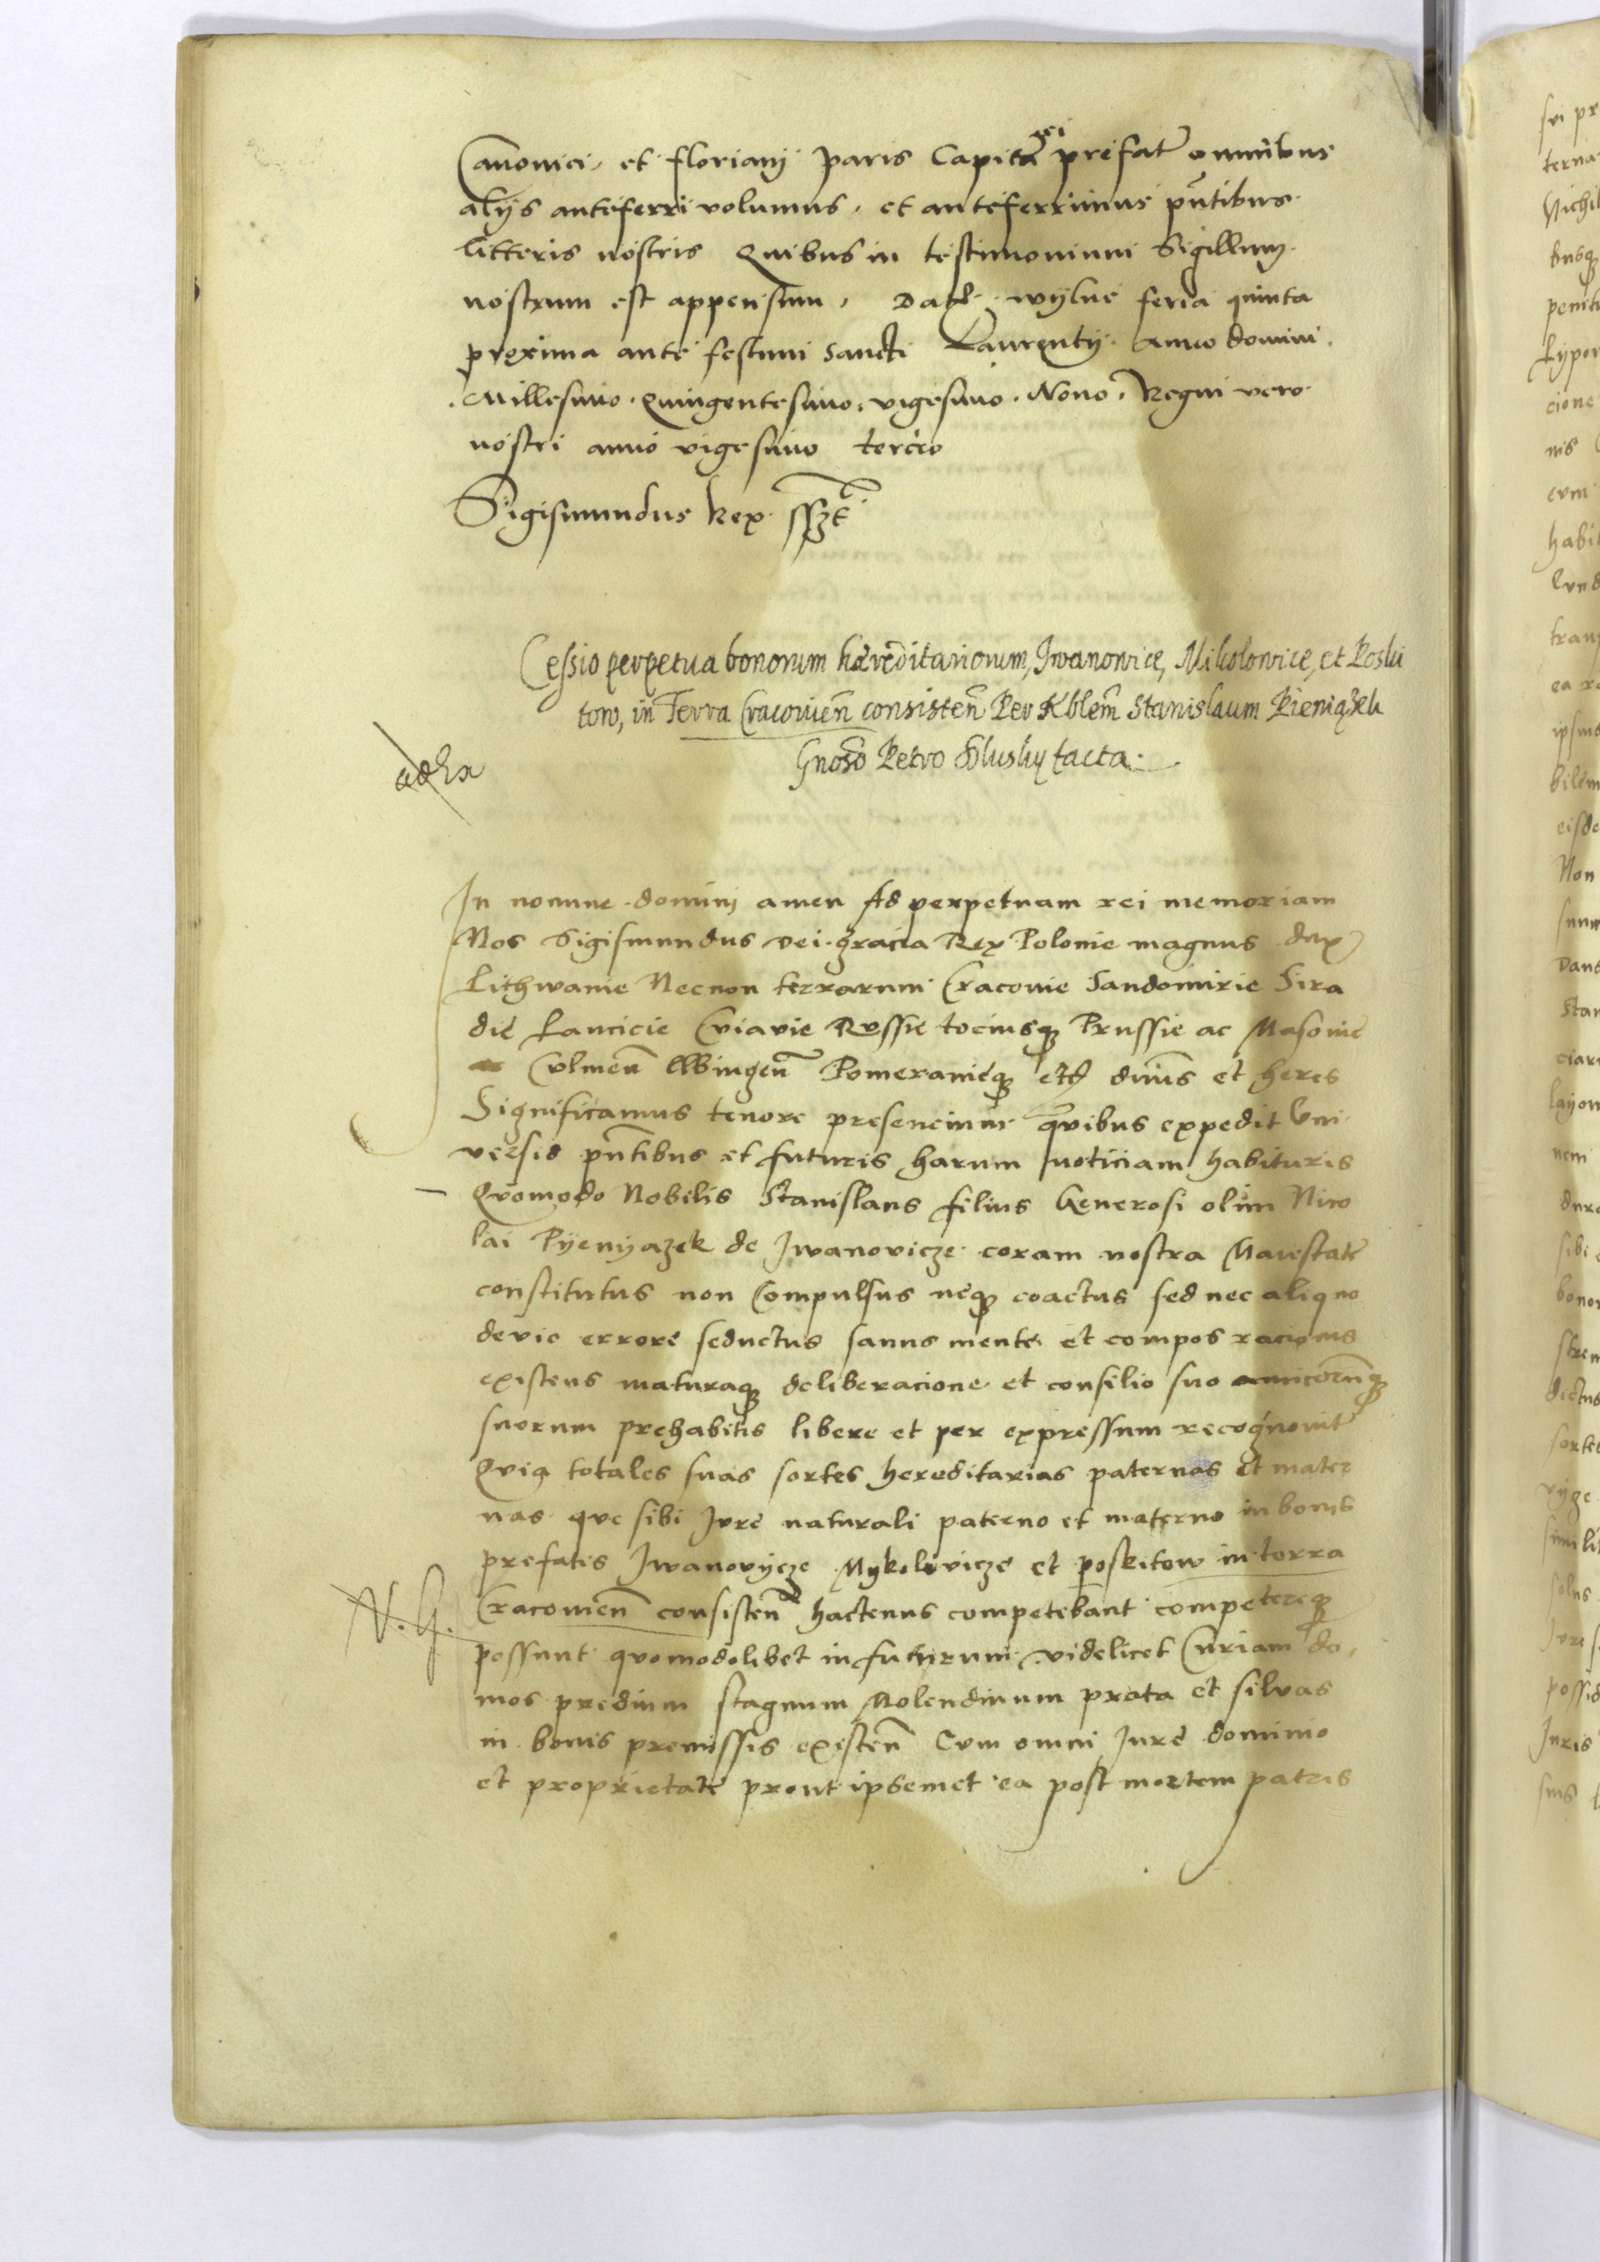 Canonici et Floriani paris Capita nei prefat omnibus
alijs anteferri volumus, et anteferrimus pñtibus
litteris nostris Quibus in testimonium Sigillum
nostrum est appensum, Dat wylne feria quinta
proxima ante festum Sancti Laurentij Anno domini
Millesimo Quingentesimo, vigesimo Nono, Regni vero
nostri anno vigesimo tercio
Sigismundus Rex
Cessio perpetua bonorum hæreditariorum, Iwanowice, Mikolowice, et Poski
tow, in Terra Cracovieñ consisteñ Per Nblem Stanislaum Pieniążek
Gnoso Petro facta.
In nomine domini amen Ad perpetuam rei memoriam
Nos Sigismundus dei gracia Rex Polonie magnus dux
Lithwanie Necnon terrarum Cracovie Sandomirie Sira
die Lancicie Cuiavie Russie tociusq Prussie ac Masovie
Culmeñ Elbingeñ Pomeranieq etc dnus et heres
Significamus tenore presencium quibus expedit Uni
versis pñtibus et futuris harum noticiam habituris
Quomodo Nobilis Stanislaus filius Generosi olim Nico
lai Pyenyazek de Iwanovicze coram nostra Maiestate
constitutus non Compulsus neq coactus sed nec aliquo
devio errore seductus sanus mente et compos racionis
existens maturaq deliberacione et consilio suo amicorumq
suorum prehabitis libere et per expressum recognovit
Quia totales suas sortes hereditarias paternas et mater
nas que sibi Iure naturali paterno et materno in bonis
prefatis Iwanovycze Mykolovicze et poskitow in terra
N. G.
Cracovieñ consisteñ hactenus competebant competereq
possunt quomodolibet in futurum videlicet Curiam do,
mos predium stagnum Molendinum prata et silvas
in bonis premissis existeñ Cum omni Iure dominio
et proprietate prout ipsemet ea post mortem patris